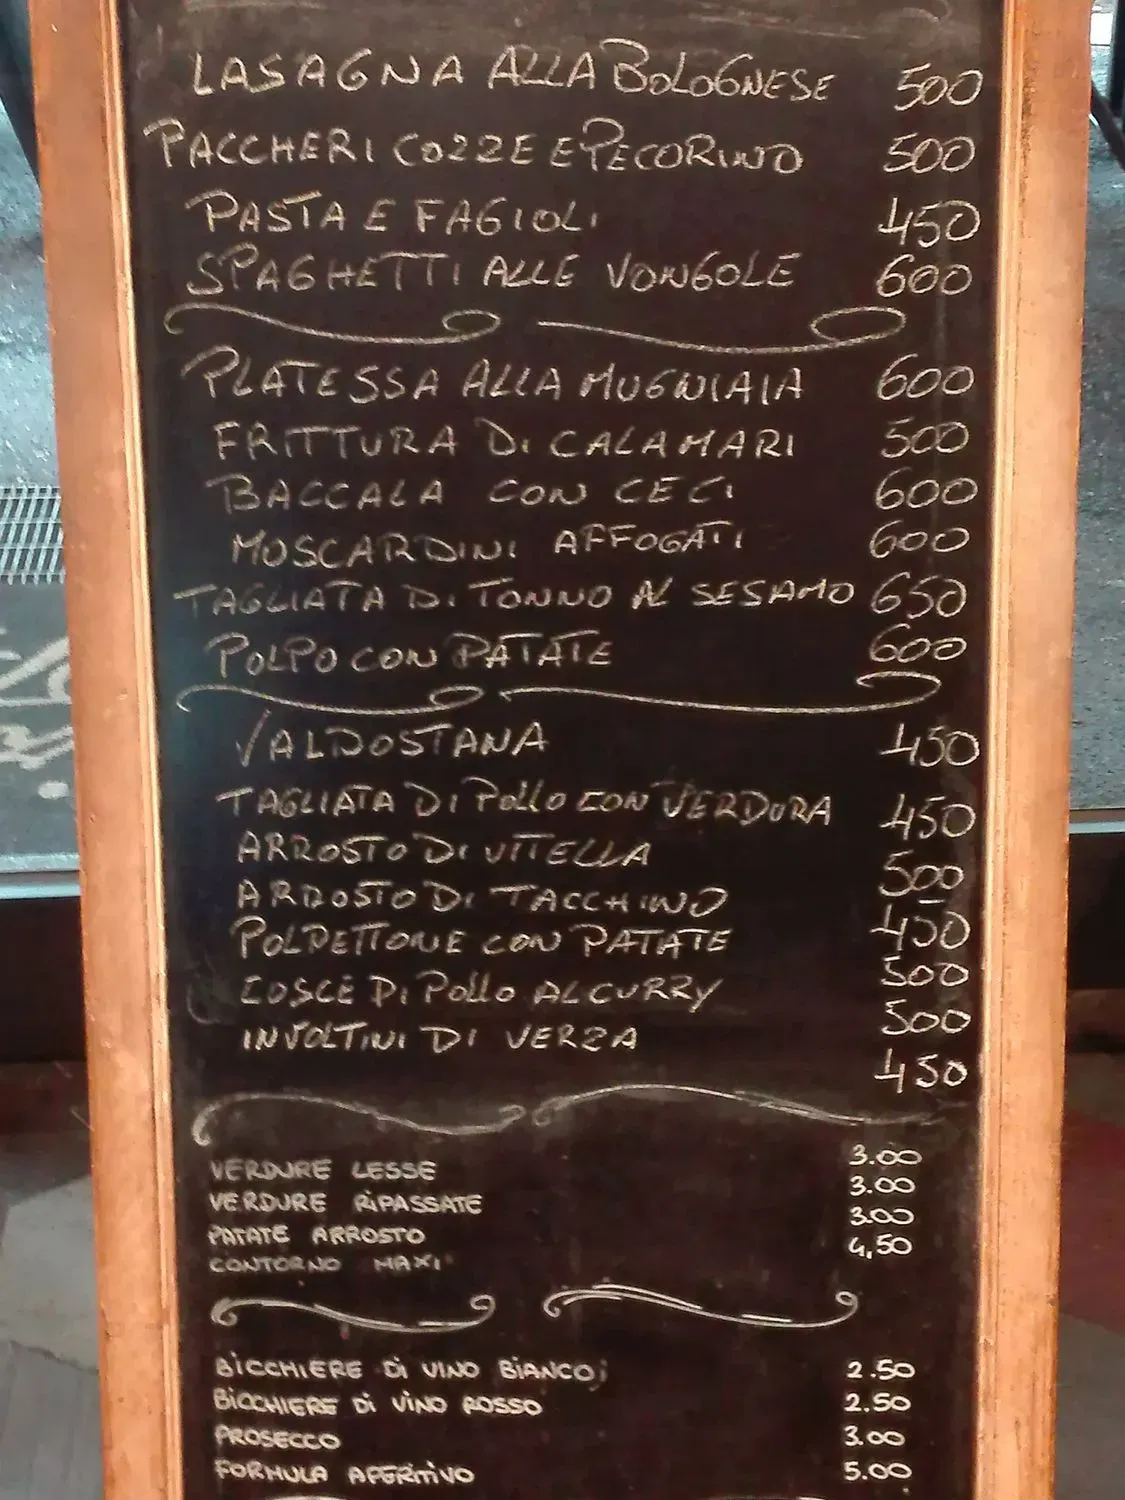 LASAGNA ALLA BOLOGNESE 500
PACCHERI COZZE E PECORINO 500
PASTA E FAGIOLI 450
SPAGHETTI ALLE VONGOLE 600
PLATESSA ALLA MUGNIAIA 600
FRITTURA DI CALAMARI 500
BACCALA CON CECI 600
MOSCARDINI AFFOGATI 600
TAGLIATA DI TONNO AL SESAMO 650
POLPO CON PATATE 600
VALDOSTANA 450
TAGLIATA DI POLLO CON VERDURA 450
ARROSTO DI VITELLA 500
ARROSTO DI TACCHINO 450
POLPETTONE CON PATATE 500
COSCE DI POLLO AL CURRY 500
INVOLTINI DI VERZA 450
VERDURE LESSE 3.00
VERDURE RIPASSATE 3.00
PATATE ARROSTO 3.00
CONTORNO MAXI 4,50
BICCHIERE DI VINO BIANCO 2.50
BICCHIERE DI VINO ROSSO 2.50
PROSECCO 3.00
FORMULA APERITIVO 5.00